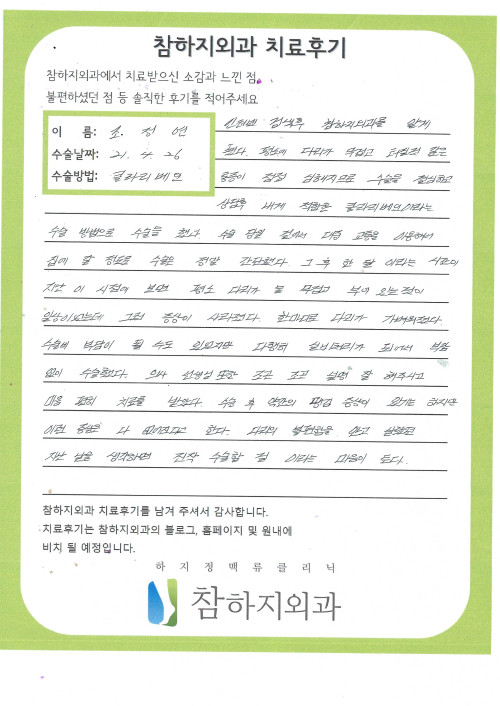 참하지외과 치료후기
참하지외과에서 치료받으신 소감과 느낀 점,
불편하셨던 점 등 솔직한 후기를 적어주세요
이 름: 조 정 연
수술날짜: 21. 4. 26
수술방법: 클라리베인
인터넷 검색후 참하지외과를 알게
됐다. 평소에 다리가 무겁고 터질것 같은
통증이 점점 심해지므로 수술을 결심하고
상담후 내게 적합한 클라리베인이라는
수술 방법으로 수술을 했다. 수술 당일 집에서 대중 교통을 이용하여
집에 갈 정도로 수술은 정말 간단했다. 그 후 한 달 이라는 시간이
지난 이 시점에 보면 평소 다리가 늘 무겁고 부어 오는 것이
일상이었는데 그런 증상이 사라졌다. 한마디로 다리가 가벼워졌다.
수술비 부담이 될 수도 있었지만 다행히 실비처리가 되어서 부담
없이 수술했다. 의사 선생님 또한 조곤 조곤 설명 잘 해주시고
마음 편히 치료를 받았다. 수술 후 약간의 땅김 증상이 있기는 하지만
이런 증상은 다 없어진다고 한다. 다리의 불편함을 안고 살았던
지난 날을 생각하면 진작 수술할 걸 이라는 마음이 든다.
참하지외과 치료후기를 남겨 주셔서 감사합니다.
치료후기는 참하지외과의 블로그, 홈페이지 및 원내에
비치 될 예정입니다.
하지정맥류클리닉
참하지외과